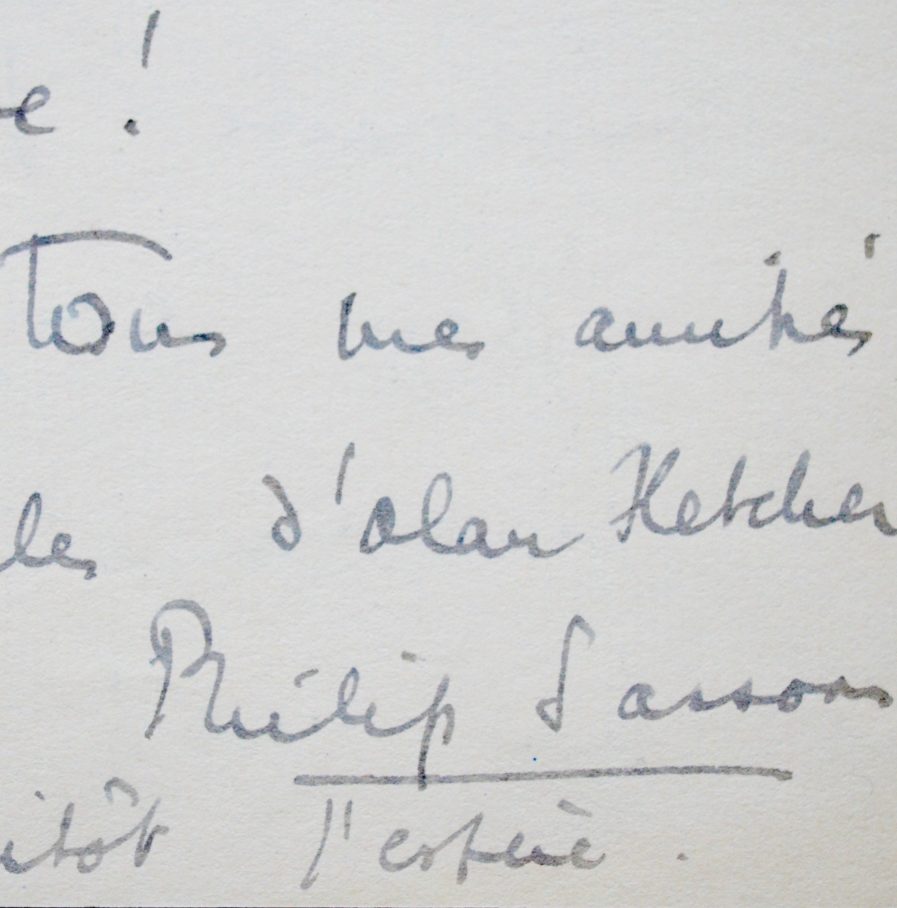 e !
Tous mes amitiés
les d'Alan Fletcher
Philip Sassoon
itôt j'espère .